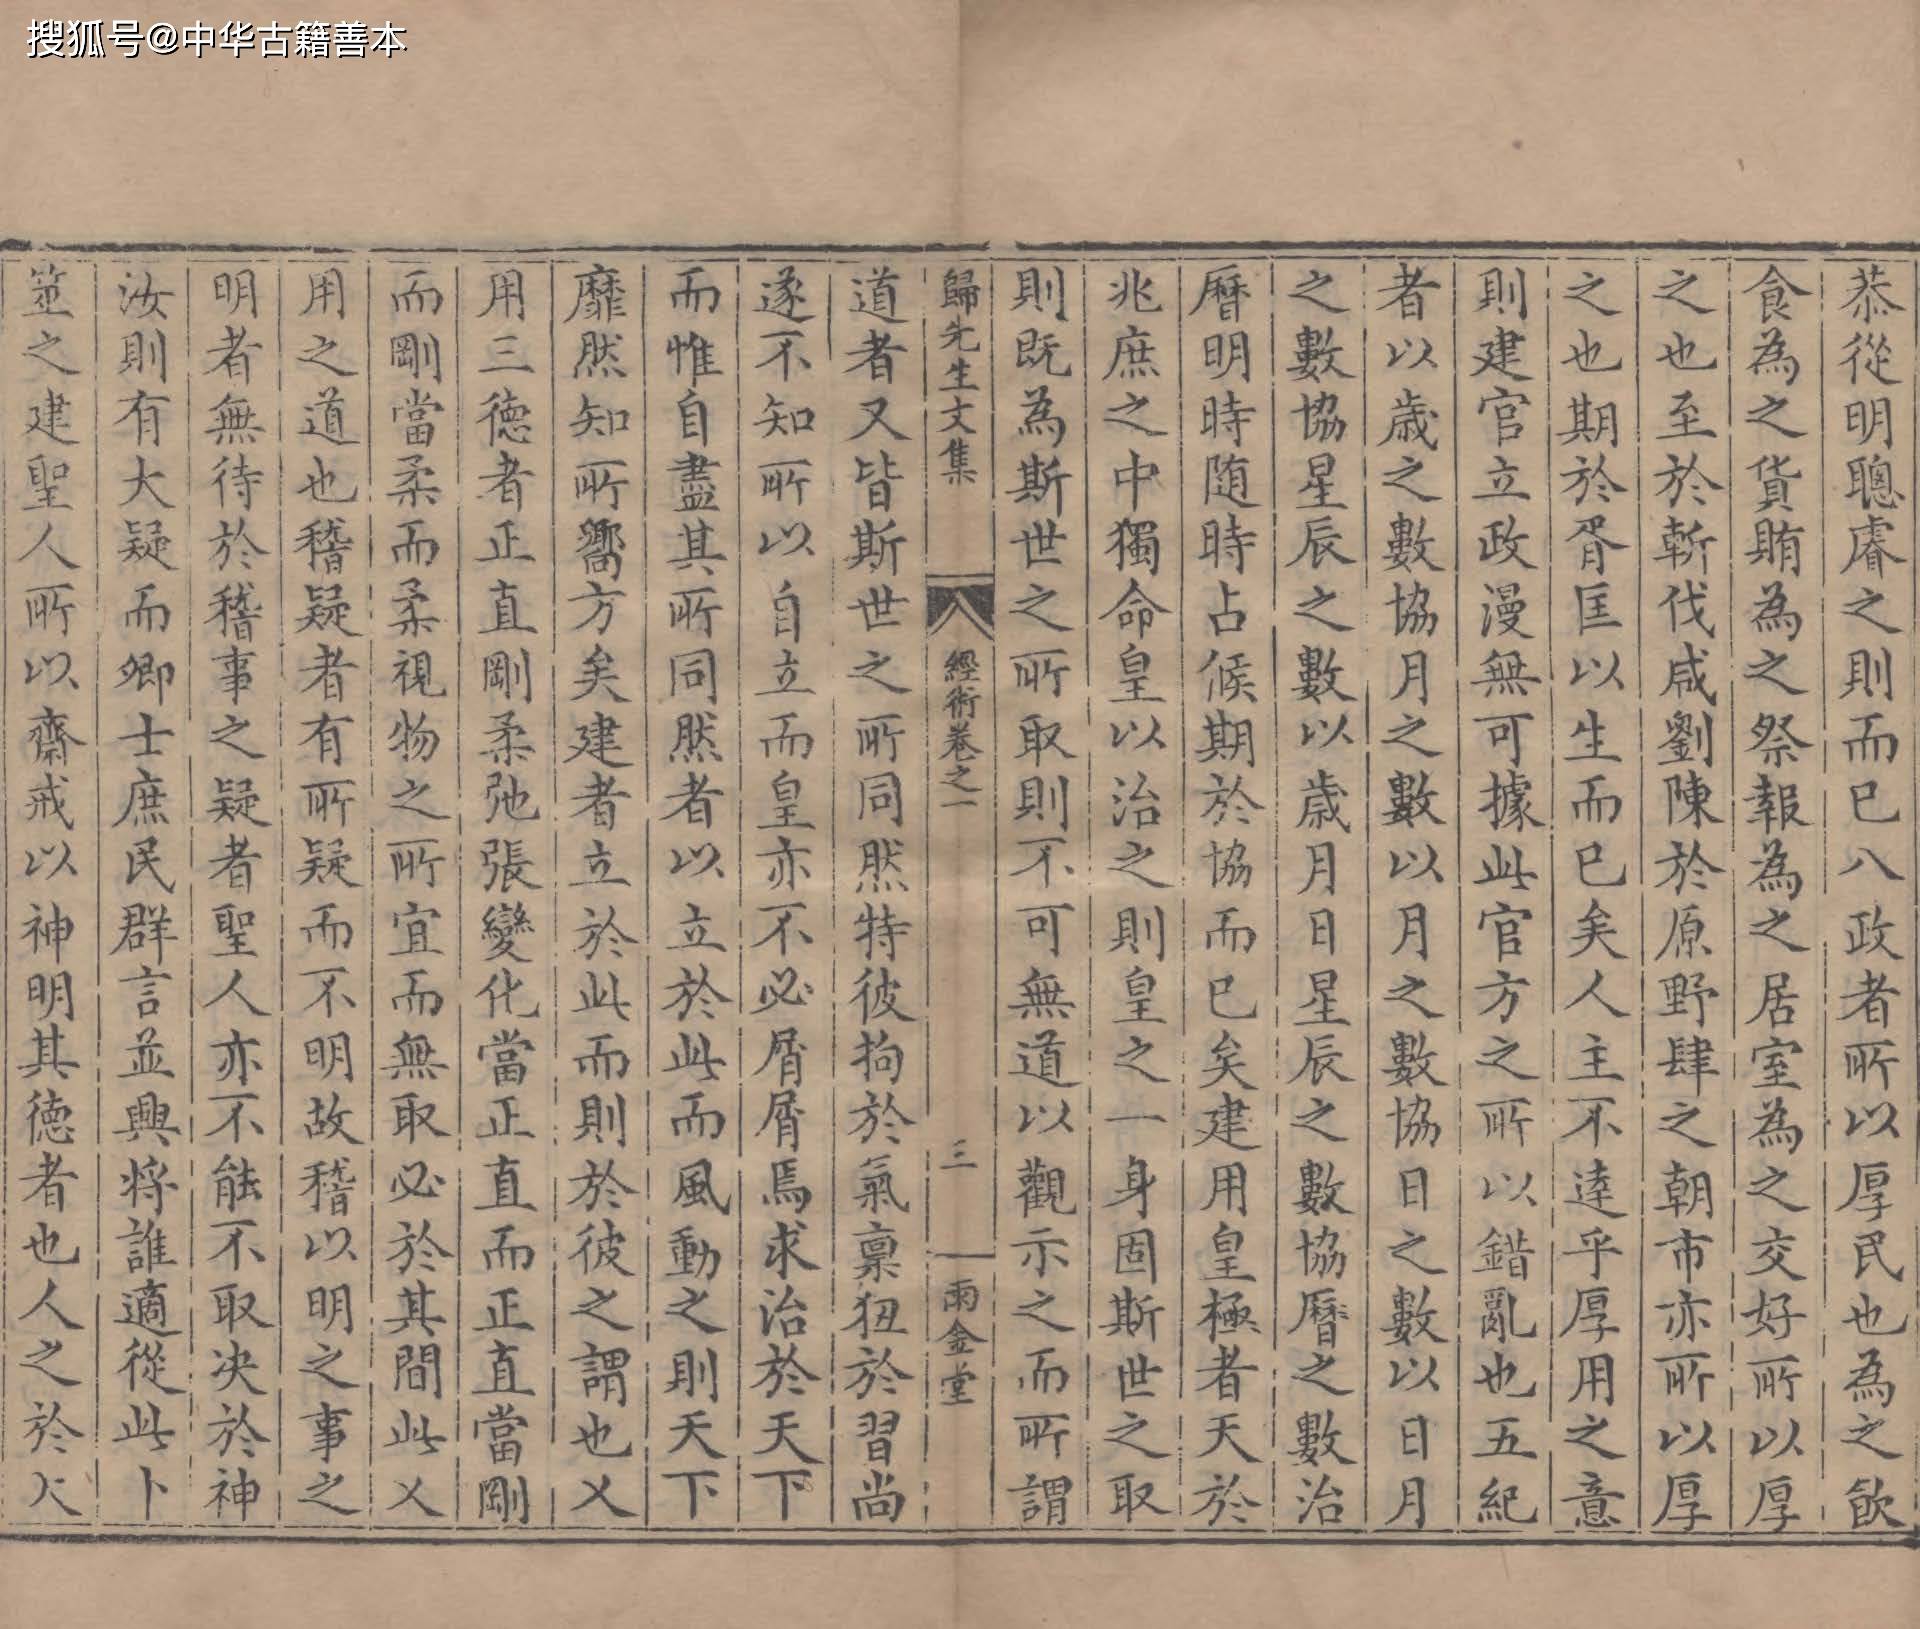 搜狐号@中华古籍善本
恭從明聰睿之則而已八政者所以厚民也為之飲
食為之貨賄為之祭報為之居室為之交好所以厚
之也至於斬伐咸劉陳於原野肆之朝市亦所以厚
之也期於胥匡以生而已矣人主不達乎厚用之意
則建官立政漫無可據此官方之所以錯亂也五紀
者以歲之數協月之數以月之數協日之數以日月
之數協星辰之數以歲月日星辰之數協曆之數治
曆明時隨時占候期於協而已矣建用皇極者天於
兆庶之中獨命皇以治之則皇之一身固斯世之取
則既為斯世之所取則不可無道以觀示之而所謂
歸先生文集
經術卷之一
三
雨金堂
道者又皆斯世之所同然特彼拘於氣稟狃於習尚
遂不知所以自立而皇亦不必屑屑焉求治於天下
而惟自盡其所同然者以立於此而風動之則天下
靡然知所嚮方矣建者立於此而則於彼之謂也乂
用三德者正直剛柔弛張變化當正直而正直當剛
而剛當柔而柔視物之所宜而無取必於其間此乂
用之道也稽疑者有所疑而不明故稽以明之事之
明者無待於稽事之疑者聖人亦不能不取決於神
汝則有大疑而卿士庶民群言並興將誰適從此卜
筮之建聖人所以齋戒以神明其德者也人之於大